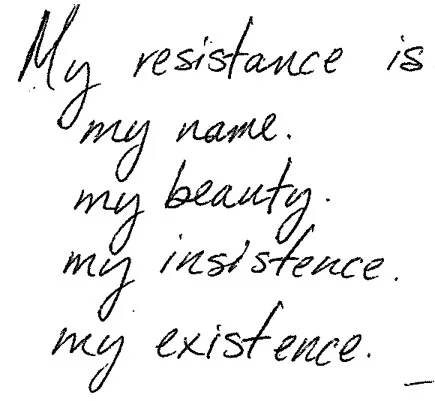 My resistance is
my name.
my beauty.
my insistence.
my existence.